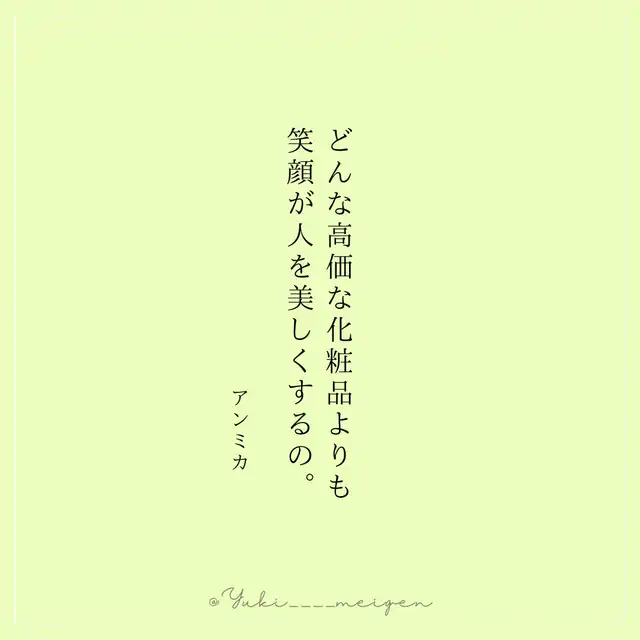 どんな高価な化粧品よりも
笑顔が人を美しくするの。
アンミカ
@Yuki____meigen